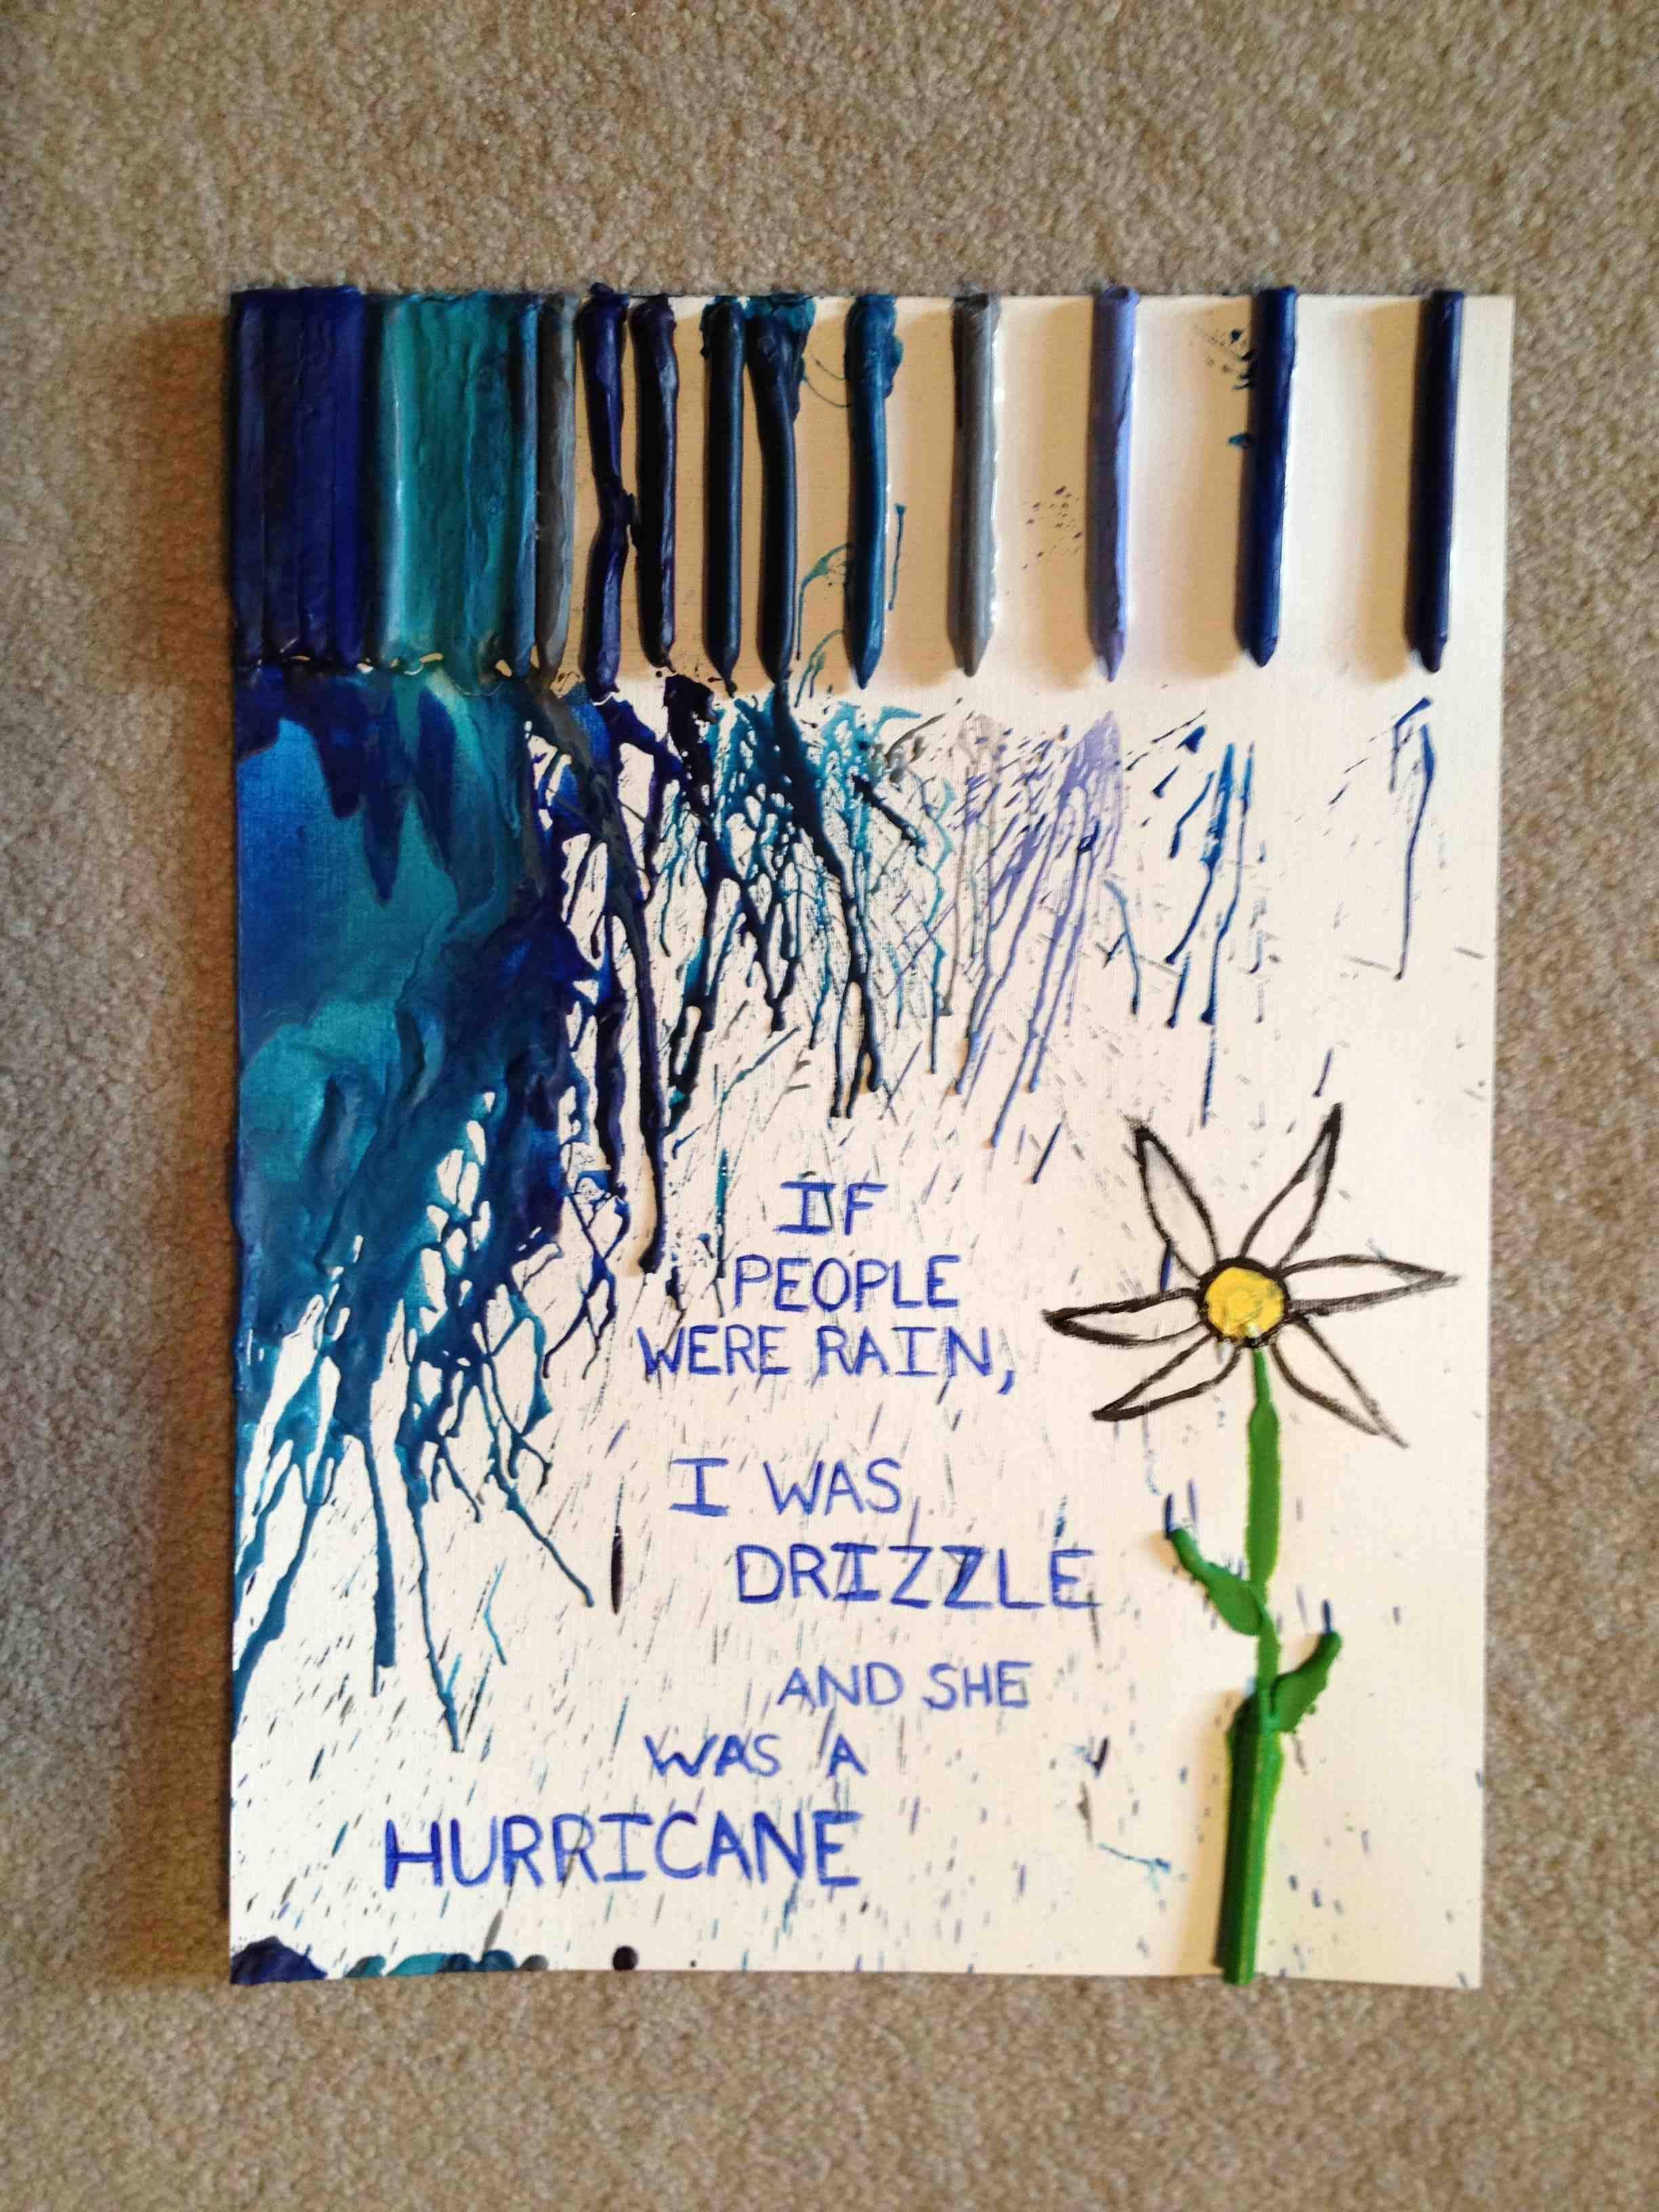 IF
PEOPLE
WERE RAIN,
I WAS
DRIZZLE
AND SHE
WAS A
HURRICANE